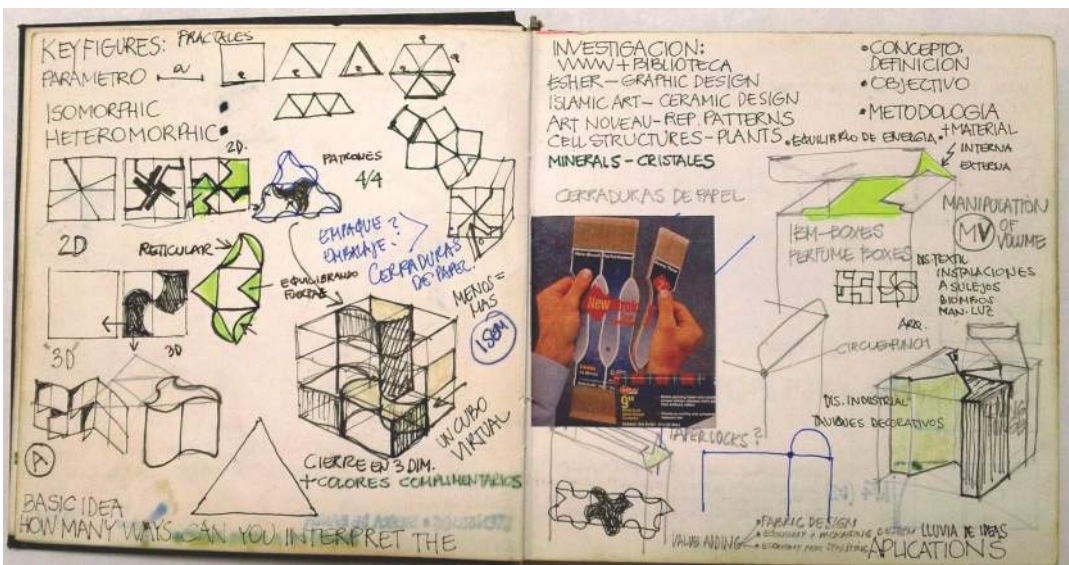 KEY FIGURES: FRACTALES
PARAMETRO a
a
a
a
a
a
a
ISOMORPHIC
HETEROMORPHIC
2D.
PATRONES
4/4
EMPAQUE?
EMBALAJE?
CERRADURAS
DE PAPEL.
2D
RETICULAR
EQUILIBRANDO
FUERZAS
MENOS =
MAS
1 SEM
"3D"
3D
UN CUBO
VIRTUAL
A
CIERRE EN 3 DIM.
+ COLORES COMPLIMENTARIOS
BASIC IDEA
HOW MANY WAYS CAN YOU INTERPRET THE
INVESTIGACION:
WWW + BIBLIOTECA
ESHER - GRAPHIC DESIGN
ISLAMIC ART - CERAMIC DESIGN
ART NOVEAU - REP. PATTERNS
CELL STRUCTURES - PLANTS
MINERALS - CRISTALES
• CONCEPTO:
DEFINICION
• OBJECTIVO
• METODOLOGIA
+ MATERIAL
• EQUILIBRIO DE ENERGIA
INTERNA
EXTERNA
CERRADURAS DE PAPEL
MANIPULATION
OF
VOLUME
MV
IBM-BOXES
PERFUME BOXES
DIS. TEXTIL
INSTALACIONES
ASULEJOS
BIOMBOS
MAN-LUZ
New
9
ARQ.
CIRCLE PUNCH
DIS. INDUSTRIAL
TAVIQUES DECORATIVOS
PAPER LOCKS?
VALUE ADDING
• FABRIC DESIGN
LLUVIA DE IDEAS
APLICATIONS